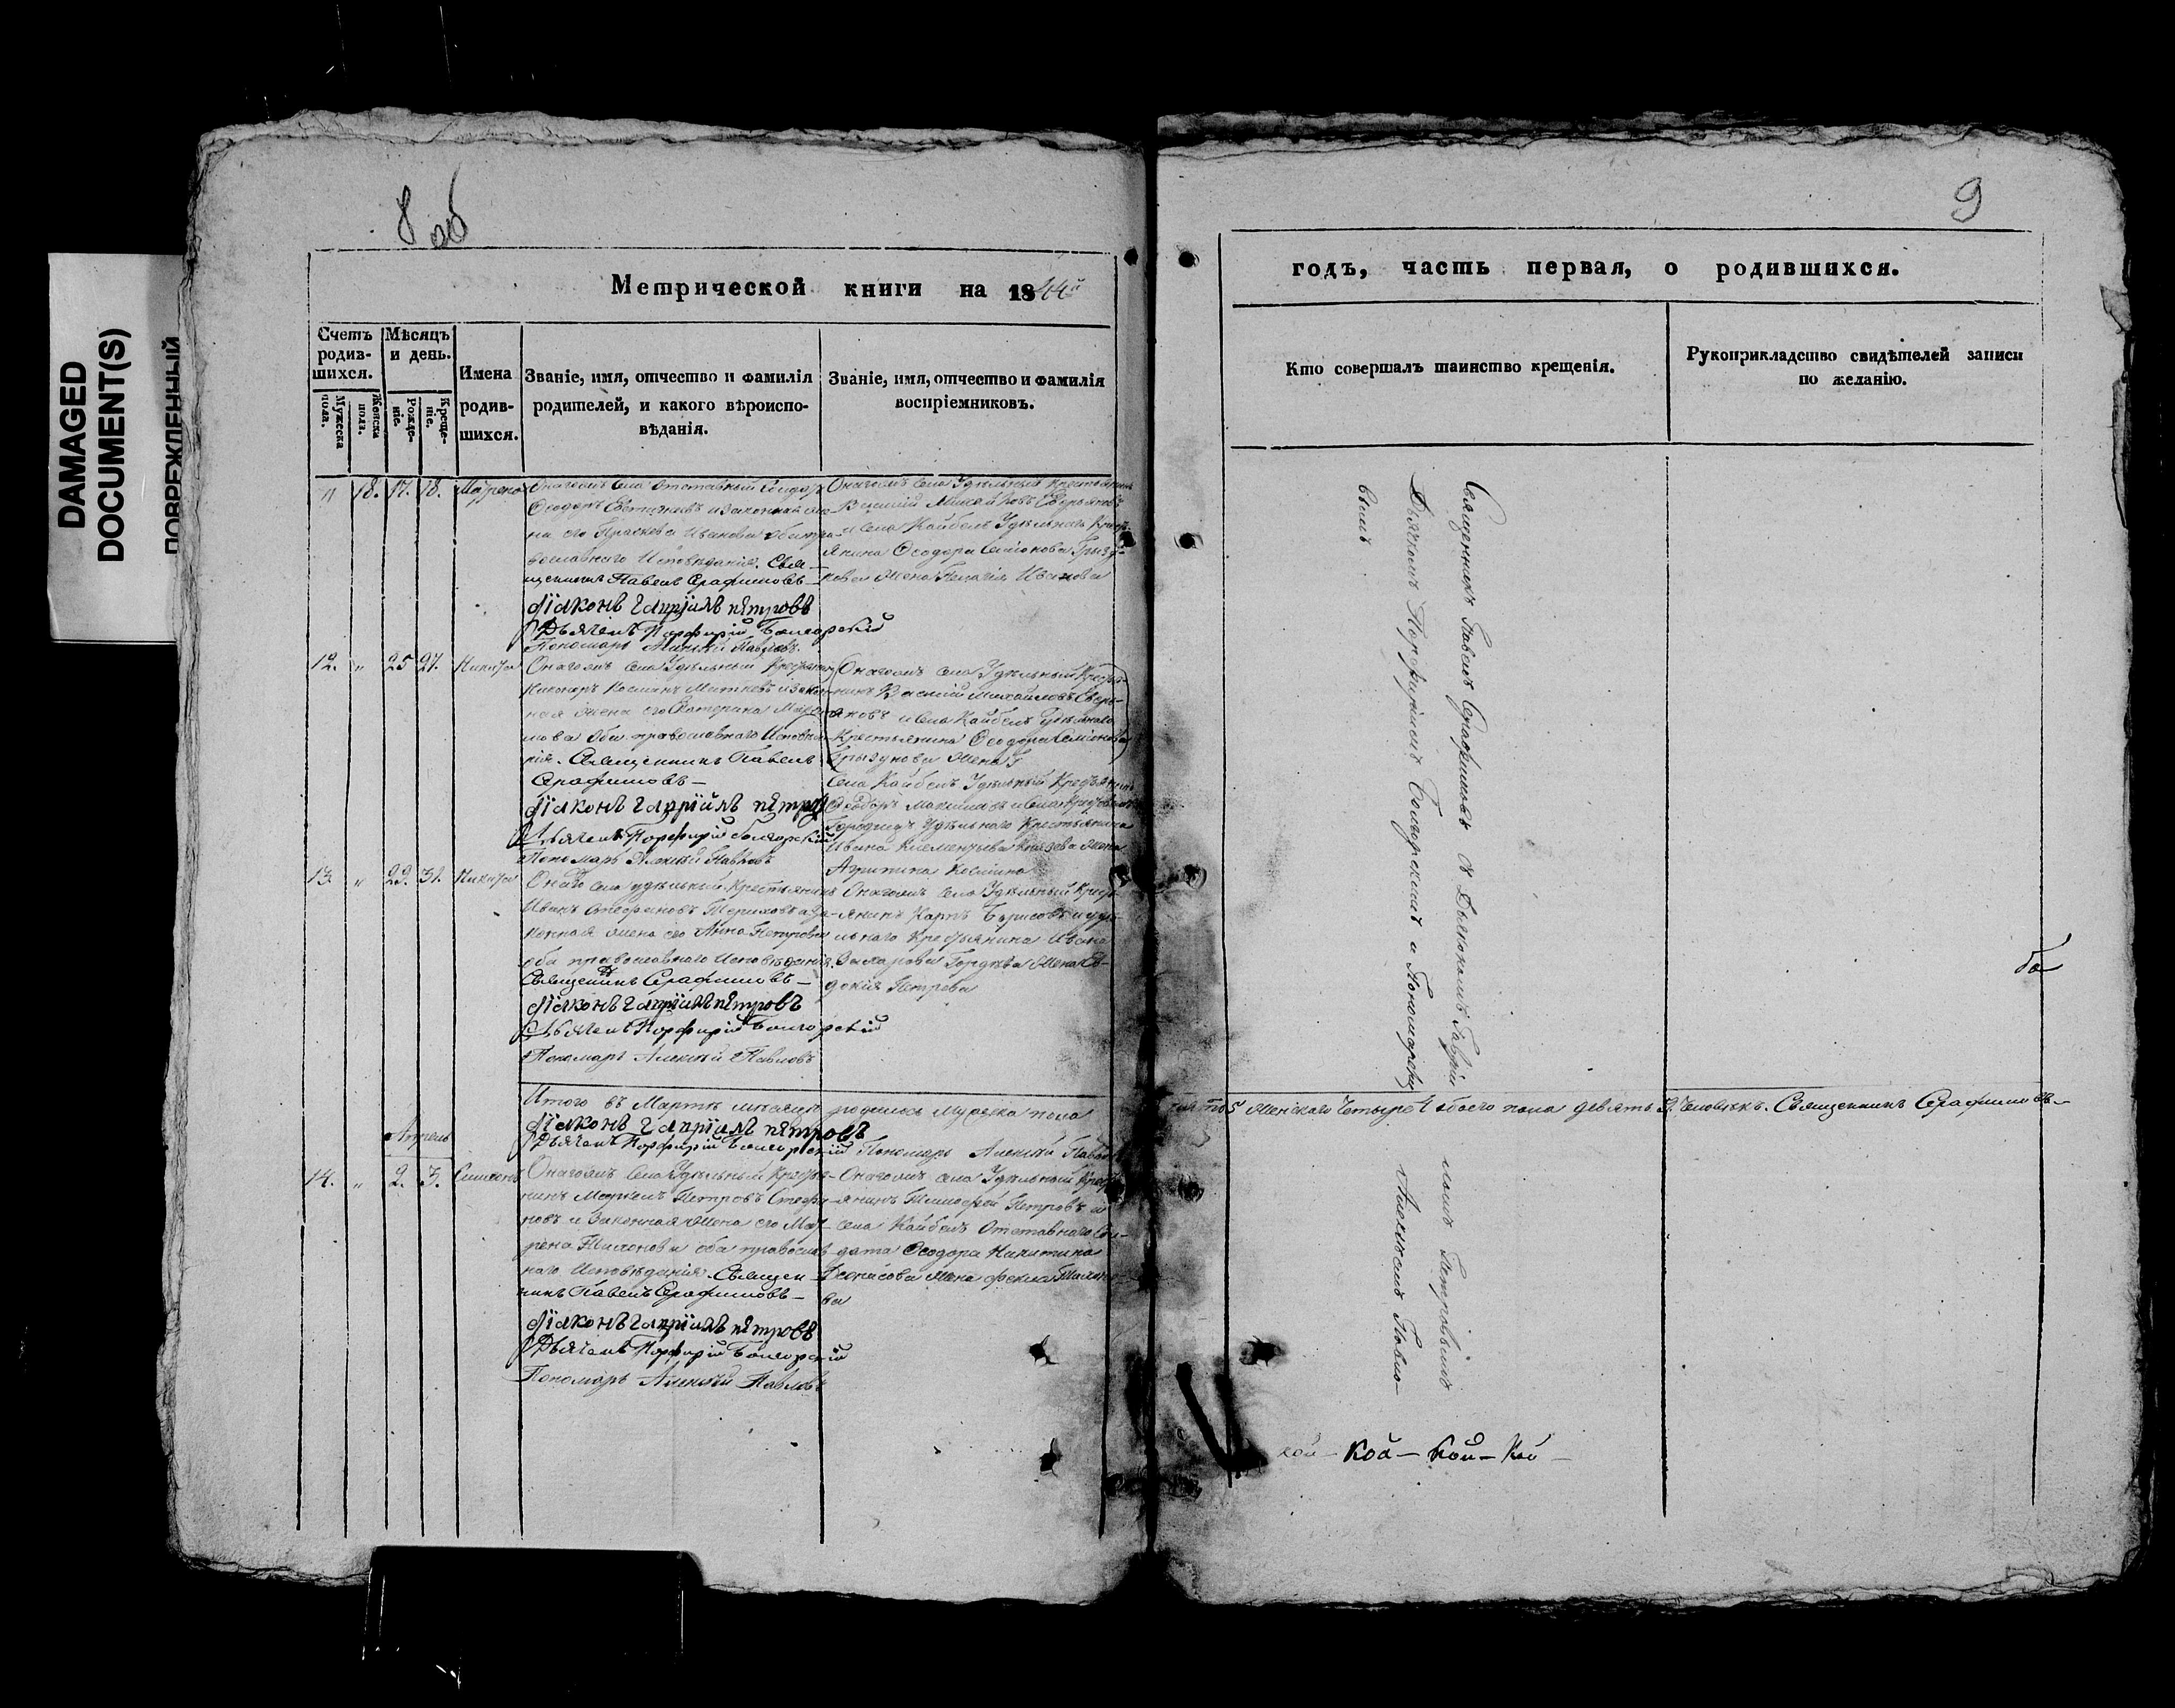 DAMAGED
DOCUMENT(S)
ПОВРЕЖДЕННЫЙ
8 об
Метрической книги на 1844й
Счетъ родив-
шихся.
Мужеска пола.
Женска пола.
Мѣсяцъ
и день.
Рожде-
нія.
Креще-
нія.
Имена
родив-
шихся.
Званіе, имя, отчество и фамилія
родителей, и какого вѣроиспо-
вѣданія.
Званіе, имя, отчество и фамилія
воспріемниковъ.
" 18. 17. 18. Матрена
Онагожъ села отставный солдатъ
Ѳеодоръ и законная же-
на его Прасковья Иванова оба пра-
вославнаго Исповѣданія. Свя-
щенникъ Павелъ Серафимовъ
Діаконъ Гавріилъ Петровъ
Дьячекъ Порфирій Болгорскій
Пономарь Алексѣй Павловъ
Онагожъ села Удѣльный крестьянинъ
Василій Михайловъ
и села Кайбелъ Удѣльнаго крест-
янина Ѳеодора Семіонова Грызу-
нова жена Пелагія Иванова
12. " 25 27. Никита
Онагожъ села Удѣльный крестьянинъ
и закон-
ная жена его Екатерина
оба православнаго Исповѣда-
нія. Священникъ Павелъ
Серафимовъ
Діаконъ Гавріилъ Петровъ
Дьячекъ Порфирій Болгорскій
Пономарь Алексѣй Павловъ
Онагожъ села Удѣльный крестья-
нинъ Василій Михайловъ
и села Кайбелъ Удѣльнаго
Крестьянина Ѳеодора Семіонова
Грызунова жена
Села Кайбелъ Удѣльный Крестьянинъ
Ѳеодоръ и села
Городищъ Удѣльнаго Крестьянина
Ивана Климентьева Князева жена
Косьмина
13. " 29. 31. Никита
Онаго села удѣльный крестьянинъ
Иванъ Стефановъ и за-
конная жена его Анна Петрова
оба православнаго Исповѣданія.
Священникъ Серафимовъ
Діаконъ Гавріилъ Петровъ
Дьячекъ Порфирій Болгорскій
Пономарь Алексѣй Павловъ
Онагожъ села Удѣльный крест-
янинъ Карпъ Борисовъ и удѣ-
льнаго крестьянина Ивана
Захарова Гордѣева жена Ев-
докія Петрова
Итого въ Мартѣ мѣсяцѣ родилось мужеска пола
Діаконъ Гавріилъ Петровъ
Дьячекъ Порфирій Болгорскій Пономарь Алексѣй Павловъ
Апрель
14. " 2. 3. Симеонъ
Онагожъ села Удѣльный крестья-
нинъ Маркелъ Петровъ Стефа-
новъ и законная жена его Мат-
рена Тихонова оба православ-
наго Исповѣданія. Священ-
никъ Павелъ Серафимовъ
Діаконъ Гавріилъ Петровъ
Дьячекъ Порфирій Болгорскій
Пономарь Алексѣй Павловъ
Онагожъ села Удѣльный крест-
янинъ Тимофей Петровъ и
села Кайбелъ Отставнаго Сол-
дата Ѳеодора Никитина
Денисова жена Фекла Тихоно-
ва
9
годъ, часть первая, о родившихся.
Кто совершалъ таинство крещенія.
Рукоприкладство свидѣтелей записи
по желанію.
Священникъ Павелъ Серафимовъ съ Дьякономъ Гаврiи-
ломъ Петровымъ
Дьячкомъ Порфиріемъ Болгорскимъ и Пономаремъ
Алексѣемъ Павло-
вымъ
5 женскаго четыре 4 обоего пола девять 9 человѣкъ. Священникъ Серафимовъ
кой — кой — кой — кой